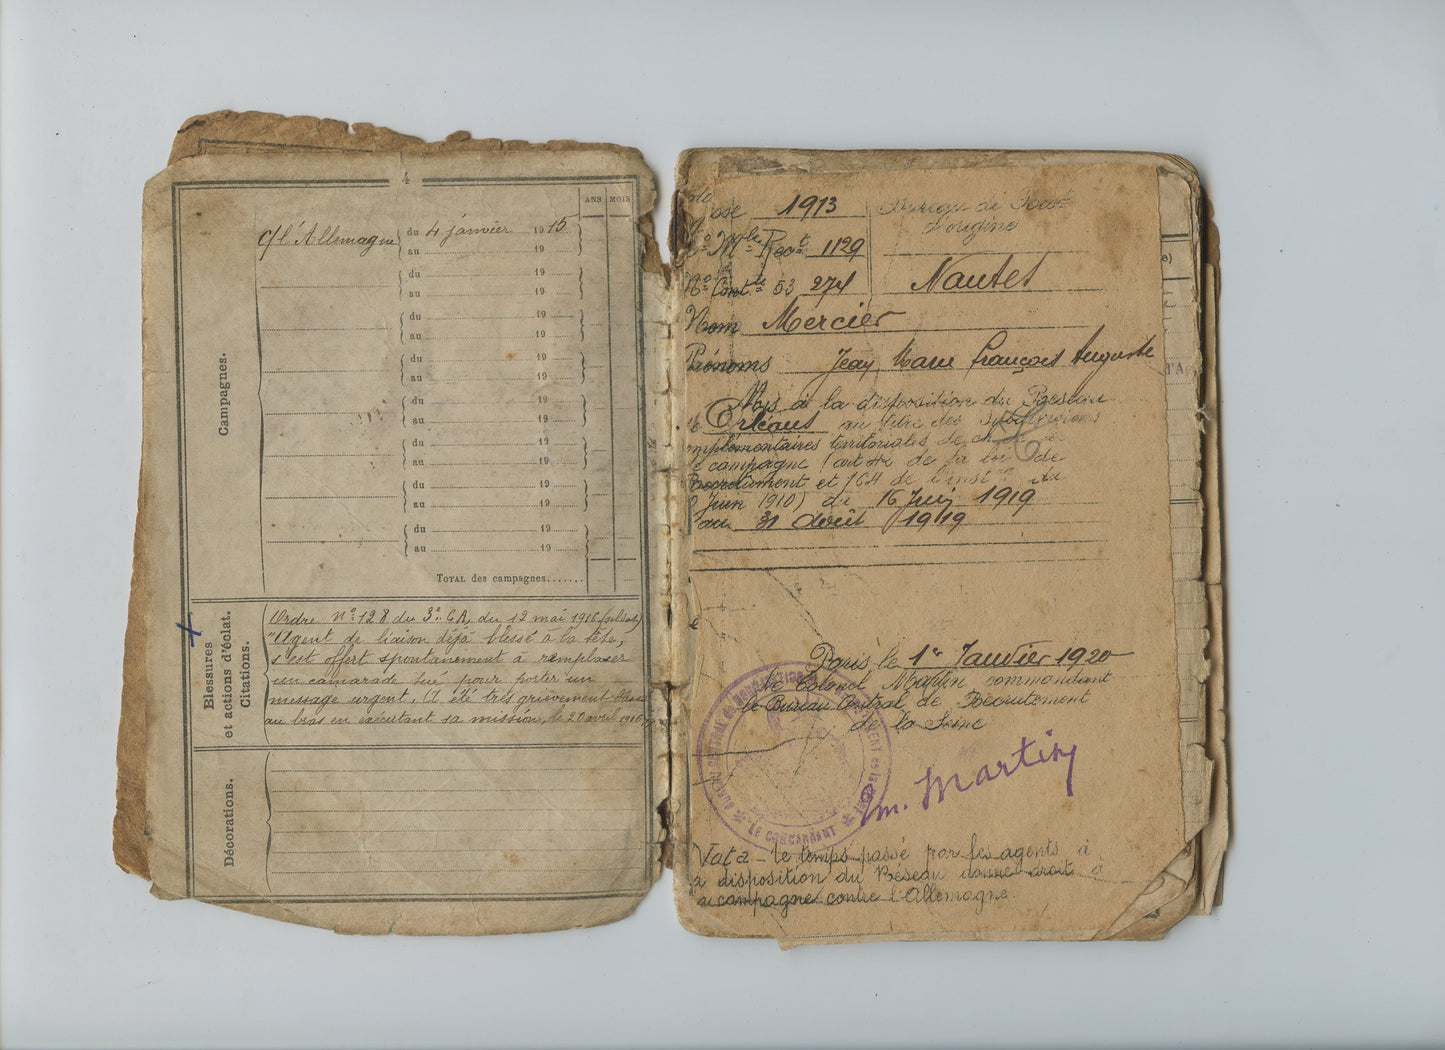 4
ANS MOIS
Campagnes.
c/ l'Allemagne du 4 janvier 1915
au 19
du 19
au 19
du 19
au 19
du 19
au 19
du 19
au 19
du 19
au 19
du 19
au 19
du 19
au 19
TOTAL des campagnes.......
Blessures
et actions d'éclat.
Citations.
Ordre N° 128 du 3e C.A. du 12 mai 1916
"Agent de liaison déjà blessé à la tête,
s'est offert spontanément à remplacer
un camarade tué pour porter un
message urgent. A été très grièvement blessé
au bras en exécutant sa mission, le 20 avril 1916"
Décorations.
sse 1913 Bureau de Rect
d'origine
N° Mle Rect 1129
N° Contle 53 274 Nantes
Nom Mercier
Prénoms Jean Marie François Auguste
Mis à la disposition du Réseau
Orléans au titre des subdivisions
mplémentaires territoriales de chf de
e campagne (art de la loi de
Recrutement et 164 de l'instn du
Juin 1910) du 16 Juin 1919
au 31 Août 1919
Paris le 1er Janvier 1920
le Colonel Martin commandant
le Bureau Central de Recrutement
de la Seine
BUREAU CENTRAL de RECRUTEMENT de la SEINE
* LE COMMANDANT *
m. Martin
Nota - le temps passé par les agents à
a disposition du Réseau donne droit à
a campagne contre l'Allemagne
e)
d'A